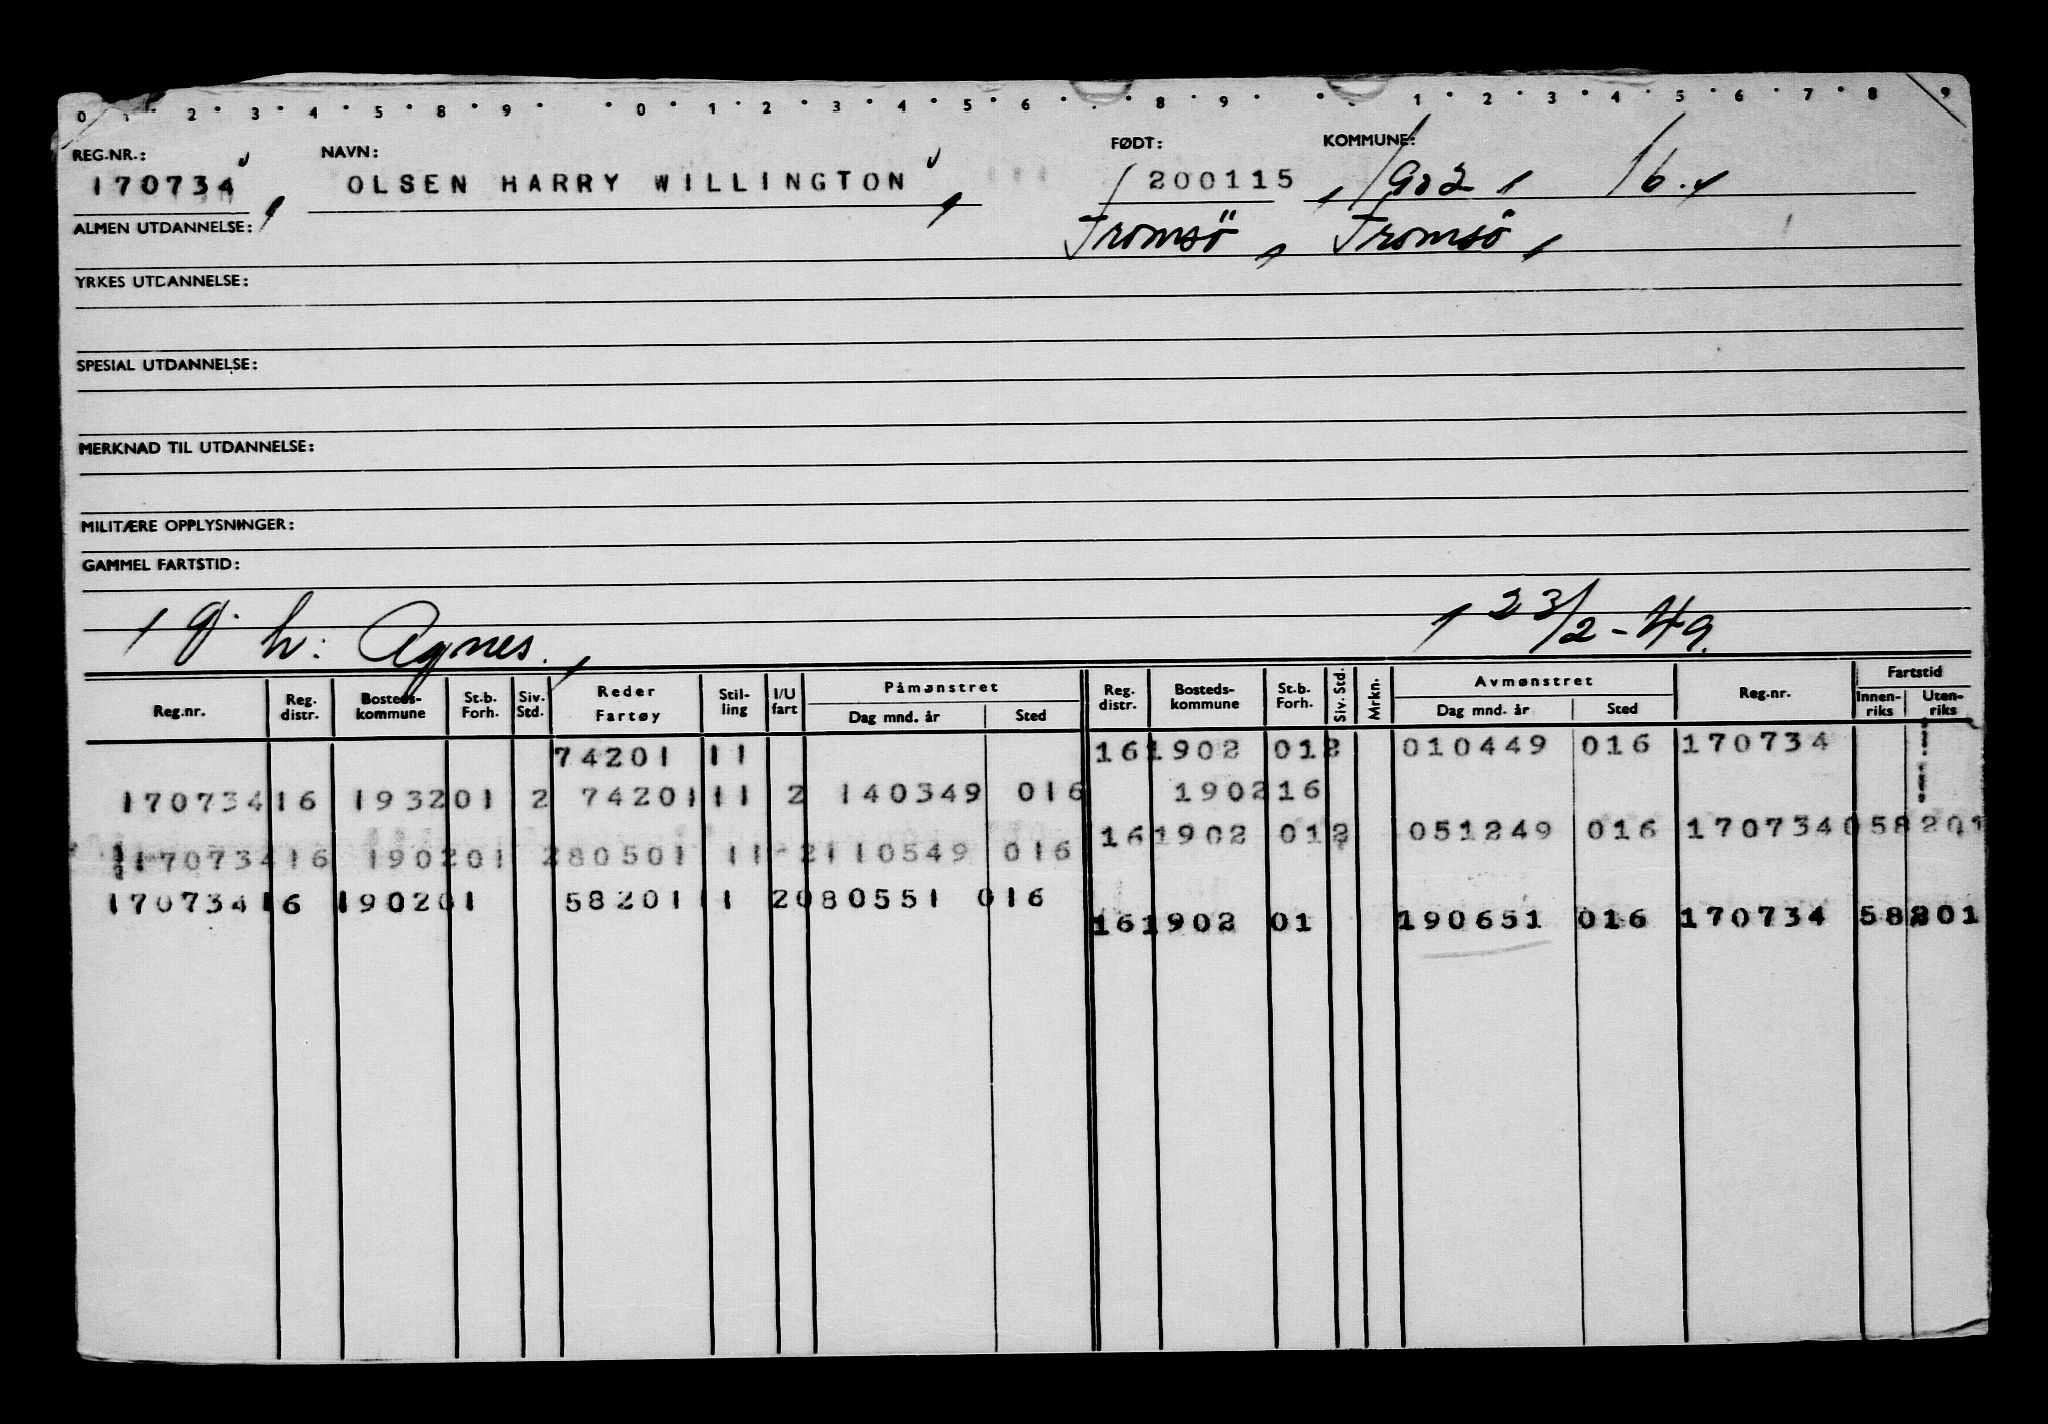 0 1 2 3 4 5 8 9 0 1 2 3 4 5 6 8 9 1 2 3 4 5 6 7 8 9
REG.NR.: NAVN: FØDT: KOMMUNE:
170734 OLSEN HARRY WILLINGTON 200115 1902 16.
ALMEN UTDANNELSE: Tromsö Tromsö
YRKES UTDANNELSE:
SPESIAL UTDANNELSE:
MERKNAD TIL UTDANNELSE:
MILITÆRE OPPLYSNINGER:
GAMMEL FARTSTID:
g. h: Agnes. 23/2-49.
Reg.nr. Reg. distr. Bosteds-kommune St.b. Forh. Siv. Std. Reder Fartøy Stil-ling I/U fart Påmønstret Dag mnd. år Sted Reg. distr. Bosteds-kommune St.b. Forh. Siv. Std. Mrkn. Avmønstret Dag mnd. år Sted Reg.nr. Fartstid Innen-riks Uten-riks
74201 11 161902 012 010449 016 170734
170734 16 193201 2 74201 11 2 140349 016 190216
161902 012 051249 016 170734 058201
170734 16 190201 280501 11-2 110549 016
170734 16 190201 58201 11 2080551 016
161902 01 190651 016 170734 58201